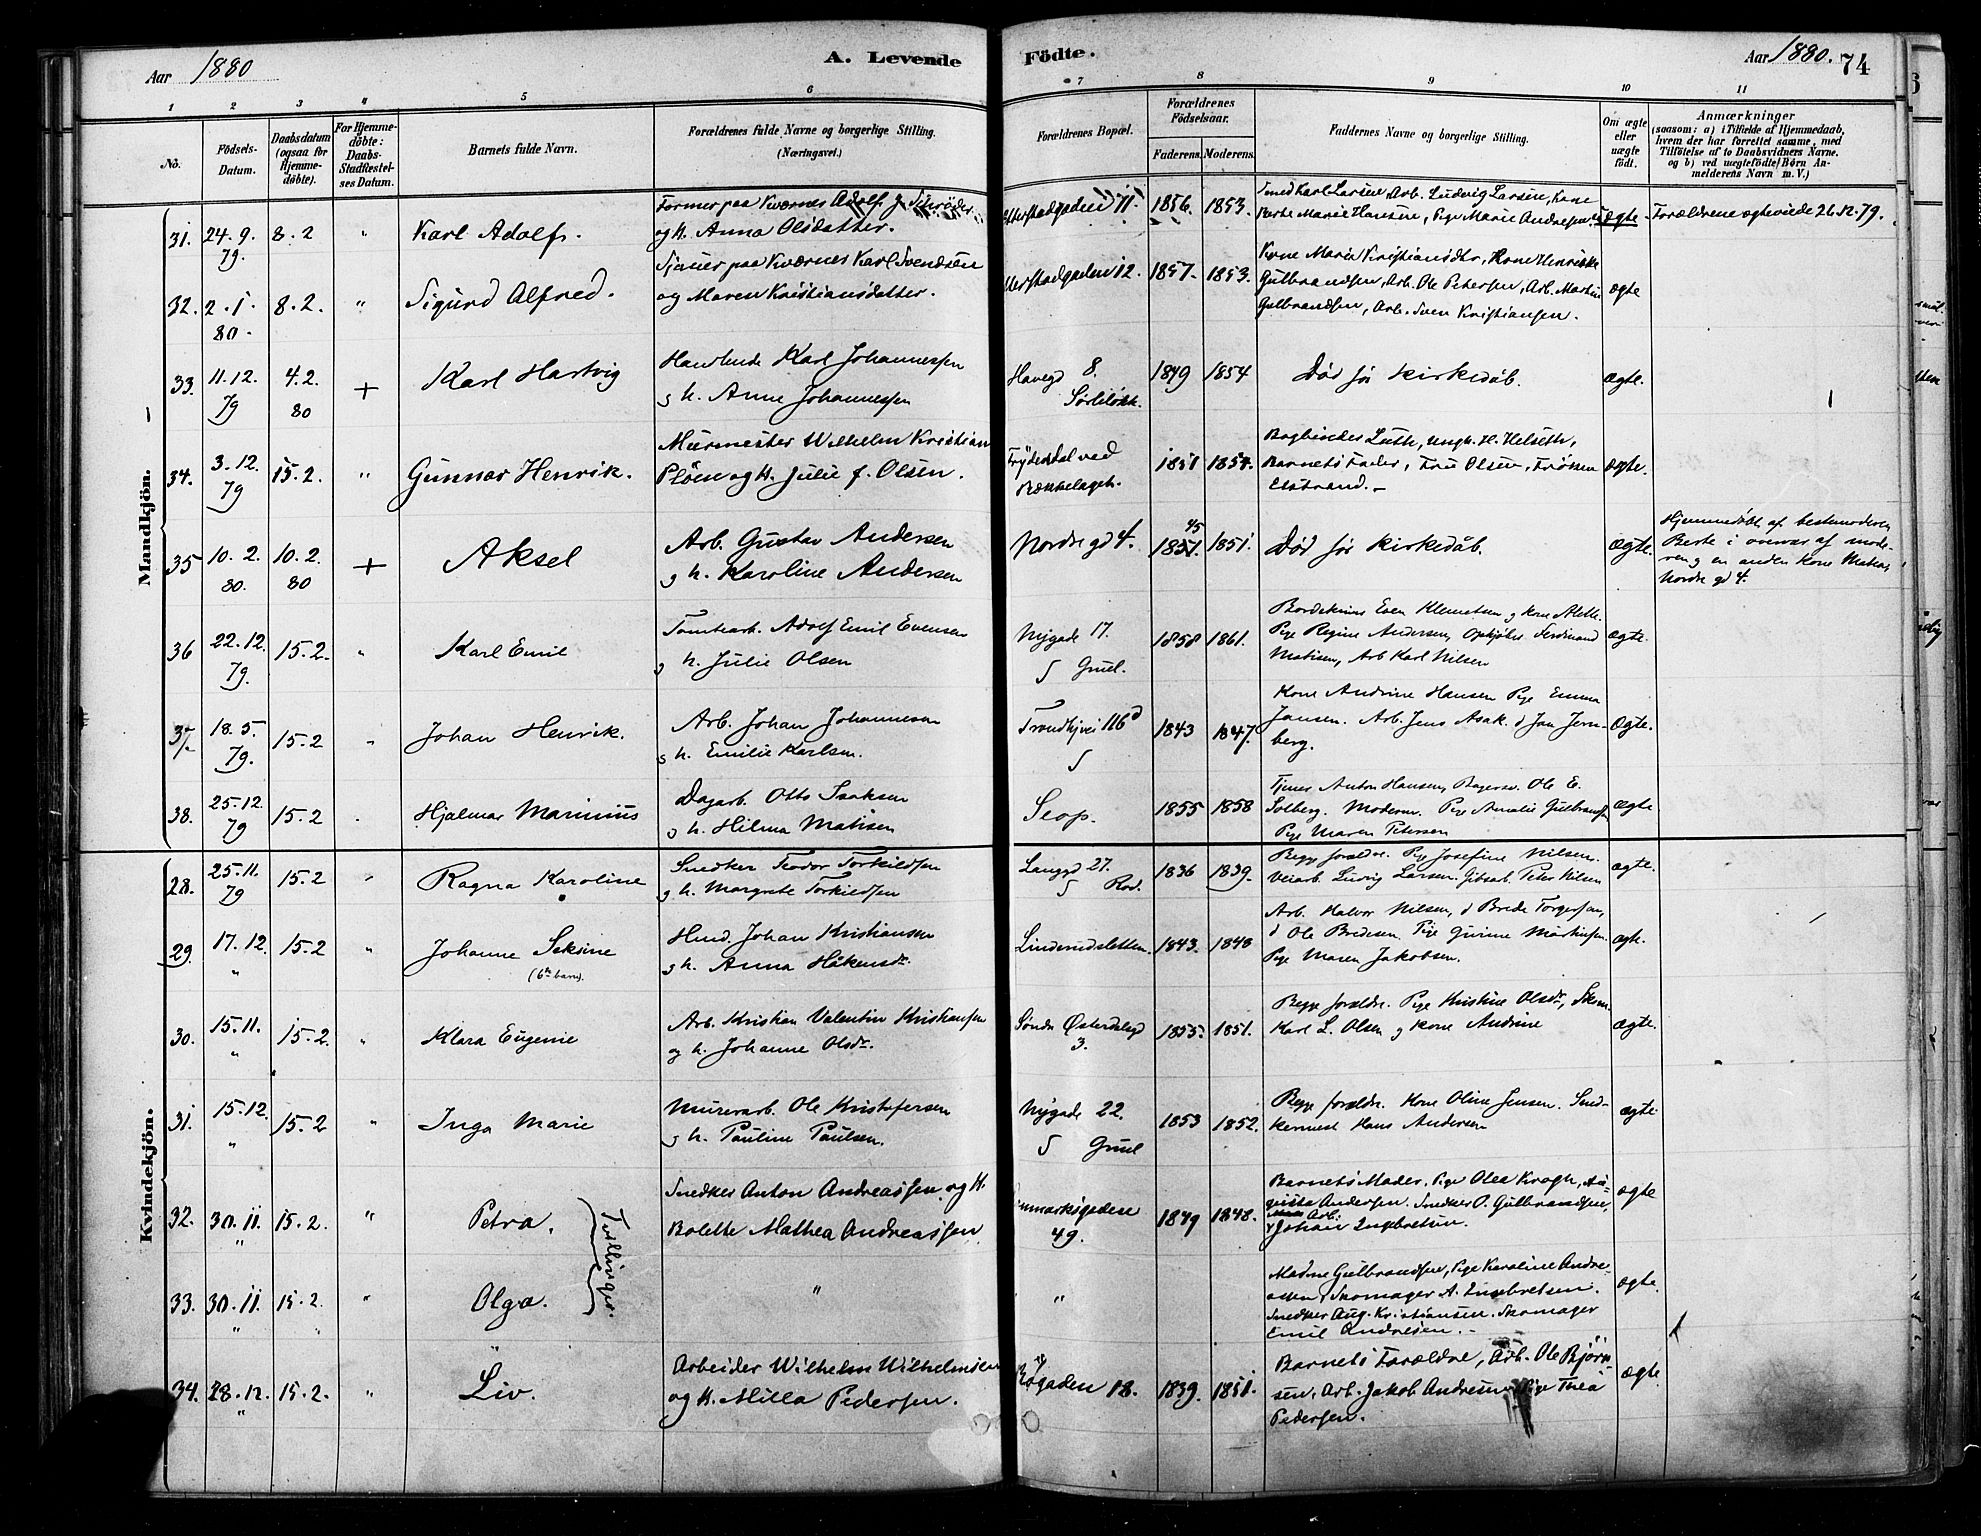 Aar 1880 A. Levende Födte. Aar 1880. 74
1 2 3 4 5 6 7 8 9 10 11
No. Födsels-Datum. Daabsdatum (ogsaa för Hjemme-döbte). For Hjemme-döbte: Daabs-Stadfæstel-ses Datum. Barnets fulde Navn. Forældrenes fulde Navne og borgerlige Stilling. (Næringsvei.) Forældrenes Bopæl. Forældrenes Födselsaar. Faderens. Moderens. Faddernes Navne og borgerlige Stilling. Om ægte eller uægte födt. Anmærkninger (saasom: a) i Tilfælde af Hjemmedaab, hvem der har forrettet samme, med Tilföielse af to Daabsvidners Navne. og b) ved uægtefödte Börn An-melderens Navn m. V.)
Mandkjön.
31. 24.9. 79. 8.2 " Karl Adolf.
Former paa Kværner Adolf J. Schrøder
og H. Anna Olsdatter.
11. 1856. 1853.
Smed Karl Larsen, Arb. Ludvig Larsen, Kone
Berte Marie Hansen, Pige Marie Andresen
ægte Forældrene ægteviede 26.12.79.
32. 2.1. 80. 8.2. " Sigurd Alfred.
paa Kværner Karl Svendsen
og Maren Kristiansdatter.
12. 1857. 1853.
Kone Marie Kristiansdtr, Kone Henrikke
Gulbrandsen, Arb. Ole Petersen, Arb. Martin
Gulbrandsen, Arb. Sven Kristiansen.
ægte
33. 11.12. 79 4.2. 80 + Karl Hartvig
Handlende Karl Johannessen
og h. Anne Johannessen
Havegd 8.
Sørliløkk.
1849 1854 Død før Kirkedåb. ægte.
34. 3.12. 79 15.2. " Gunnar Henrik.
Murmester Wilhelm Kristian
Pløen og H. Julie f. Olsen.
Frydendal ved
Bækkelaget.
1851 1854.
Bogbinder Luth, ungk. H. Helseth,
Barnets Fader, Fru Olsen, Frøken
Ekstrand.
ægte.
35 10.2. 80. 10.2 80 + Aksel
Arb. Gustav Andersen
og h. Karoline Andersen
Nordre gd 4. 45 1851. 1851. Død før Kirkedåb. ægte.
Hjemmedøbt af bestemoderen
Berte i overvær af mode-
ren og en anden Kone Mathea,
Nordre gd 4.
36 22.12. 79. 15.2. " Karl Emil
Tomtearb. Adolf Emil Evensen
og h. Julie Olsen
Nygade 17.
1858 1861.
Even Klemetsen og kone Alette.
Pige Regine Andersen, Ferdinand
Matisen, Arb Karl Nilsen
ægte.
37. 18.5. 79. 15.2 " Johan Henrik.
Arb. Johan Johannesen
og h. Emilie Karlsen.
Trondhjvei 116 d
1843 1847.
Kone Andrine Hansen Pige Emma
Jansen. Arb. Jens Asak. d Jan Jern-
berg.
Ægte.
38. 25.12. 79 15.2 Hjalmar Marinius
Dagarb. Otto Isaksen
og h. Hilma Matisen
1855 1858
Tjener Anton Hansen, Bagersv. Ole E.
Solberg. Moderen. Pige Amalie Gulbrands
Pige Maren Petersen
ægte
Kvindekjön.
28. 25.11. 79 15.2 " Ragna Karoline
Snedker Teodor Torkildsen
og h. Margrete Torkildsen
Langgd 27.
1836 1839.
Begge foræld. Pige Josefine Nilsen.
Veiarb. Ludvig Larsen. Peter Nilsen
ægte.
29. 17.12 " 15.2 " Johanne Seksine
(6te barn).
Hmd. Johan Kristiansen
og h. Anna Håkensdr.
Linderudsletten. 1843. 1848
Arb. Halvor Nilsen, d Brede Torgersen,
d Ole Bredesen. Pige Gurine Martinsen
Pige Maren Jakobsen.
ægte.
30. 15.11. " 15.2. " Klara Eugenie
Arb. Kristian Valentin Kristiansen
og h. Johanne Olsdr.
Søndre Østerdalsgd
3.
1855. 1851.
Begge forældre. Pige Kristine Olsdr,
Karl L. Olsen og kone Andrine
ægte.
31. 15.12. " 15.2 " Inga Marie
Murerarb. Ole Kristofersen
og h. Pauline Paulsen.
Nygade 22.
1853 1852.
Begge forældre. Kone Oline Jensen. Sned-
kermest Hans Andersen
ægte
32. 30.11. " 15.2. " Petra. Tvillinger.
Snedker Anton Andreassen og H.
Bolette Mathea Andreassen
49.
1849 1848.
Barnets Moder, Pige Olea Krogh, Au-
gusta Andersen. Snedker O. Gulbrandsen,
Arb.
Johan Ingebretsen.
ægte
33. 30.11. " 15.2. " Olga. " "
Madme Gulbrandsen, Pige Karoline Andre-
assen, Skomager A. Ingebretsen.
Snedker Aug. Kristiansen. Skomager
Emil Andresen.
ægte.
34. 28.12. " 15.2. " Liv.
Arbeider Wilhelm Wilhelmsen
og H. Milla Pedersen.
18. 1839. 1851.
Barnets Forældre, Arb. Ole Bjørn-
sen, Arb. Jakob Andresen, Pige Thea
Pedersen.
ægte.